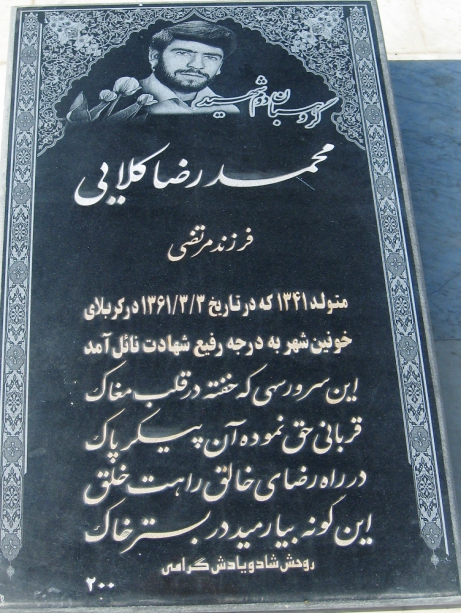 گروهبان دوم شهید
محمد رضا کلایی
فرزند مرتضی
متولد ۱۳۴۱ که در تاریخ ۱۳۶۱/۳/۳ در کربلای
خونین شهر به درجه رفیع شهادت نائل آمد
این سرو سهی که خفته در قلب مغاک
قربانی حق نموده آن پیکر پاک
در راه رضای خالق راحت خلق
این گونه بیارمید در بستر خاک
روحش شاد و یادش گرامی
۲۰۰